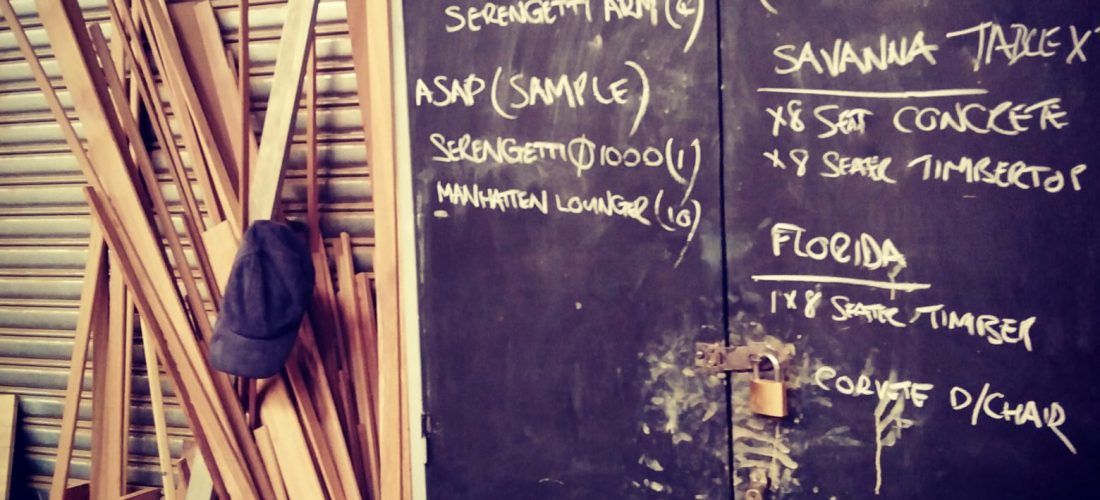 SERENGETTI ARM
ASAP (SAMPLE)
SERENGETTI Ø1000 (1)
MANHATTEN LOUNGER (10)
SAVANNA TABLE X
x8 SEAT CONCRETE
x 8 SEATER TIMBERTOP
FLORIDA
1x8 SEATER TIMBER
CORVETE D/CHAIR